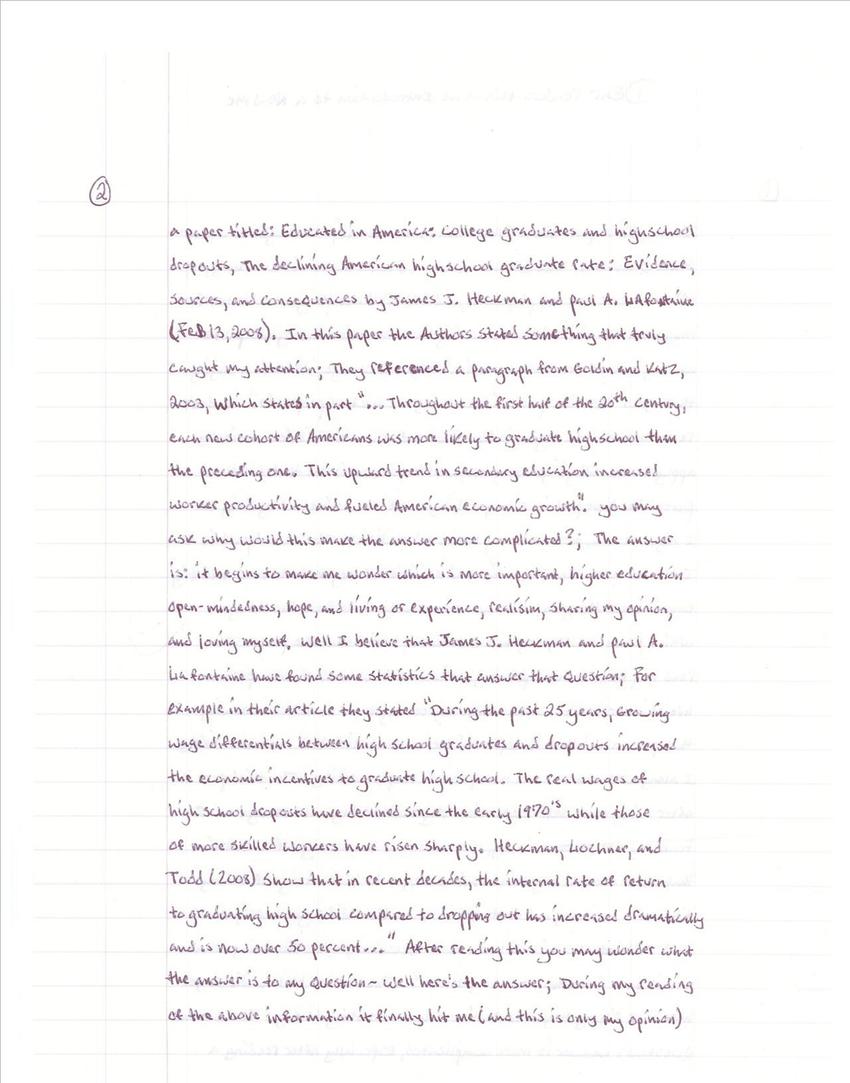 2
a paper titled: Educated in America: College graduates and highschool
dropouts, The declining American highschool graduate rate: Evidence,
sources, and consequences by James J. Heckman and paul A. LAfontaine
(FeB 13, 2008). In this paper the Authors stated something that truly
caught my attention; They referenced a paragraph from Goldin and Katz,
2003, Which states in part "... Throughout the first half of the 20th century,
each new cohort of Americans was more likely to graduate highschool than
the preceding one. This upward trend in secondary education increased
worker productivity and fueled American economic growth". you may
ask why would this make the answer more complicated?; The answer
is: it begins to make me wonder which is more important, higher education
open-mindedness, hope, and living or experience, realisim, sharing my opinion,
and loving myself. Well I believe that James J. Heckman and paul A.
Lafontaine have found some statistics that answer that Question; For
example in their article they stated "During the past 25 years, Growing
wage differentials between high school graduates and dropouts increased
the economic incentives to graduate high school. The real wages of
high school dropouts have declined since the early 1970's while those
of more skilled workers have risen sharply. Heckman, Lochner, and
Todd (2008) show that in recent decades, the internal rate of return
to graduating high school compared to dropping out has increased dramatically
and is now over 50 percent..." After reading this you may wonder what
the answer is to my Question~ well here's the answer; During my reading
of the above information it finally hit me (and this is only my opinion)